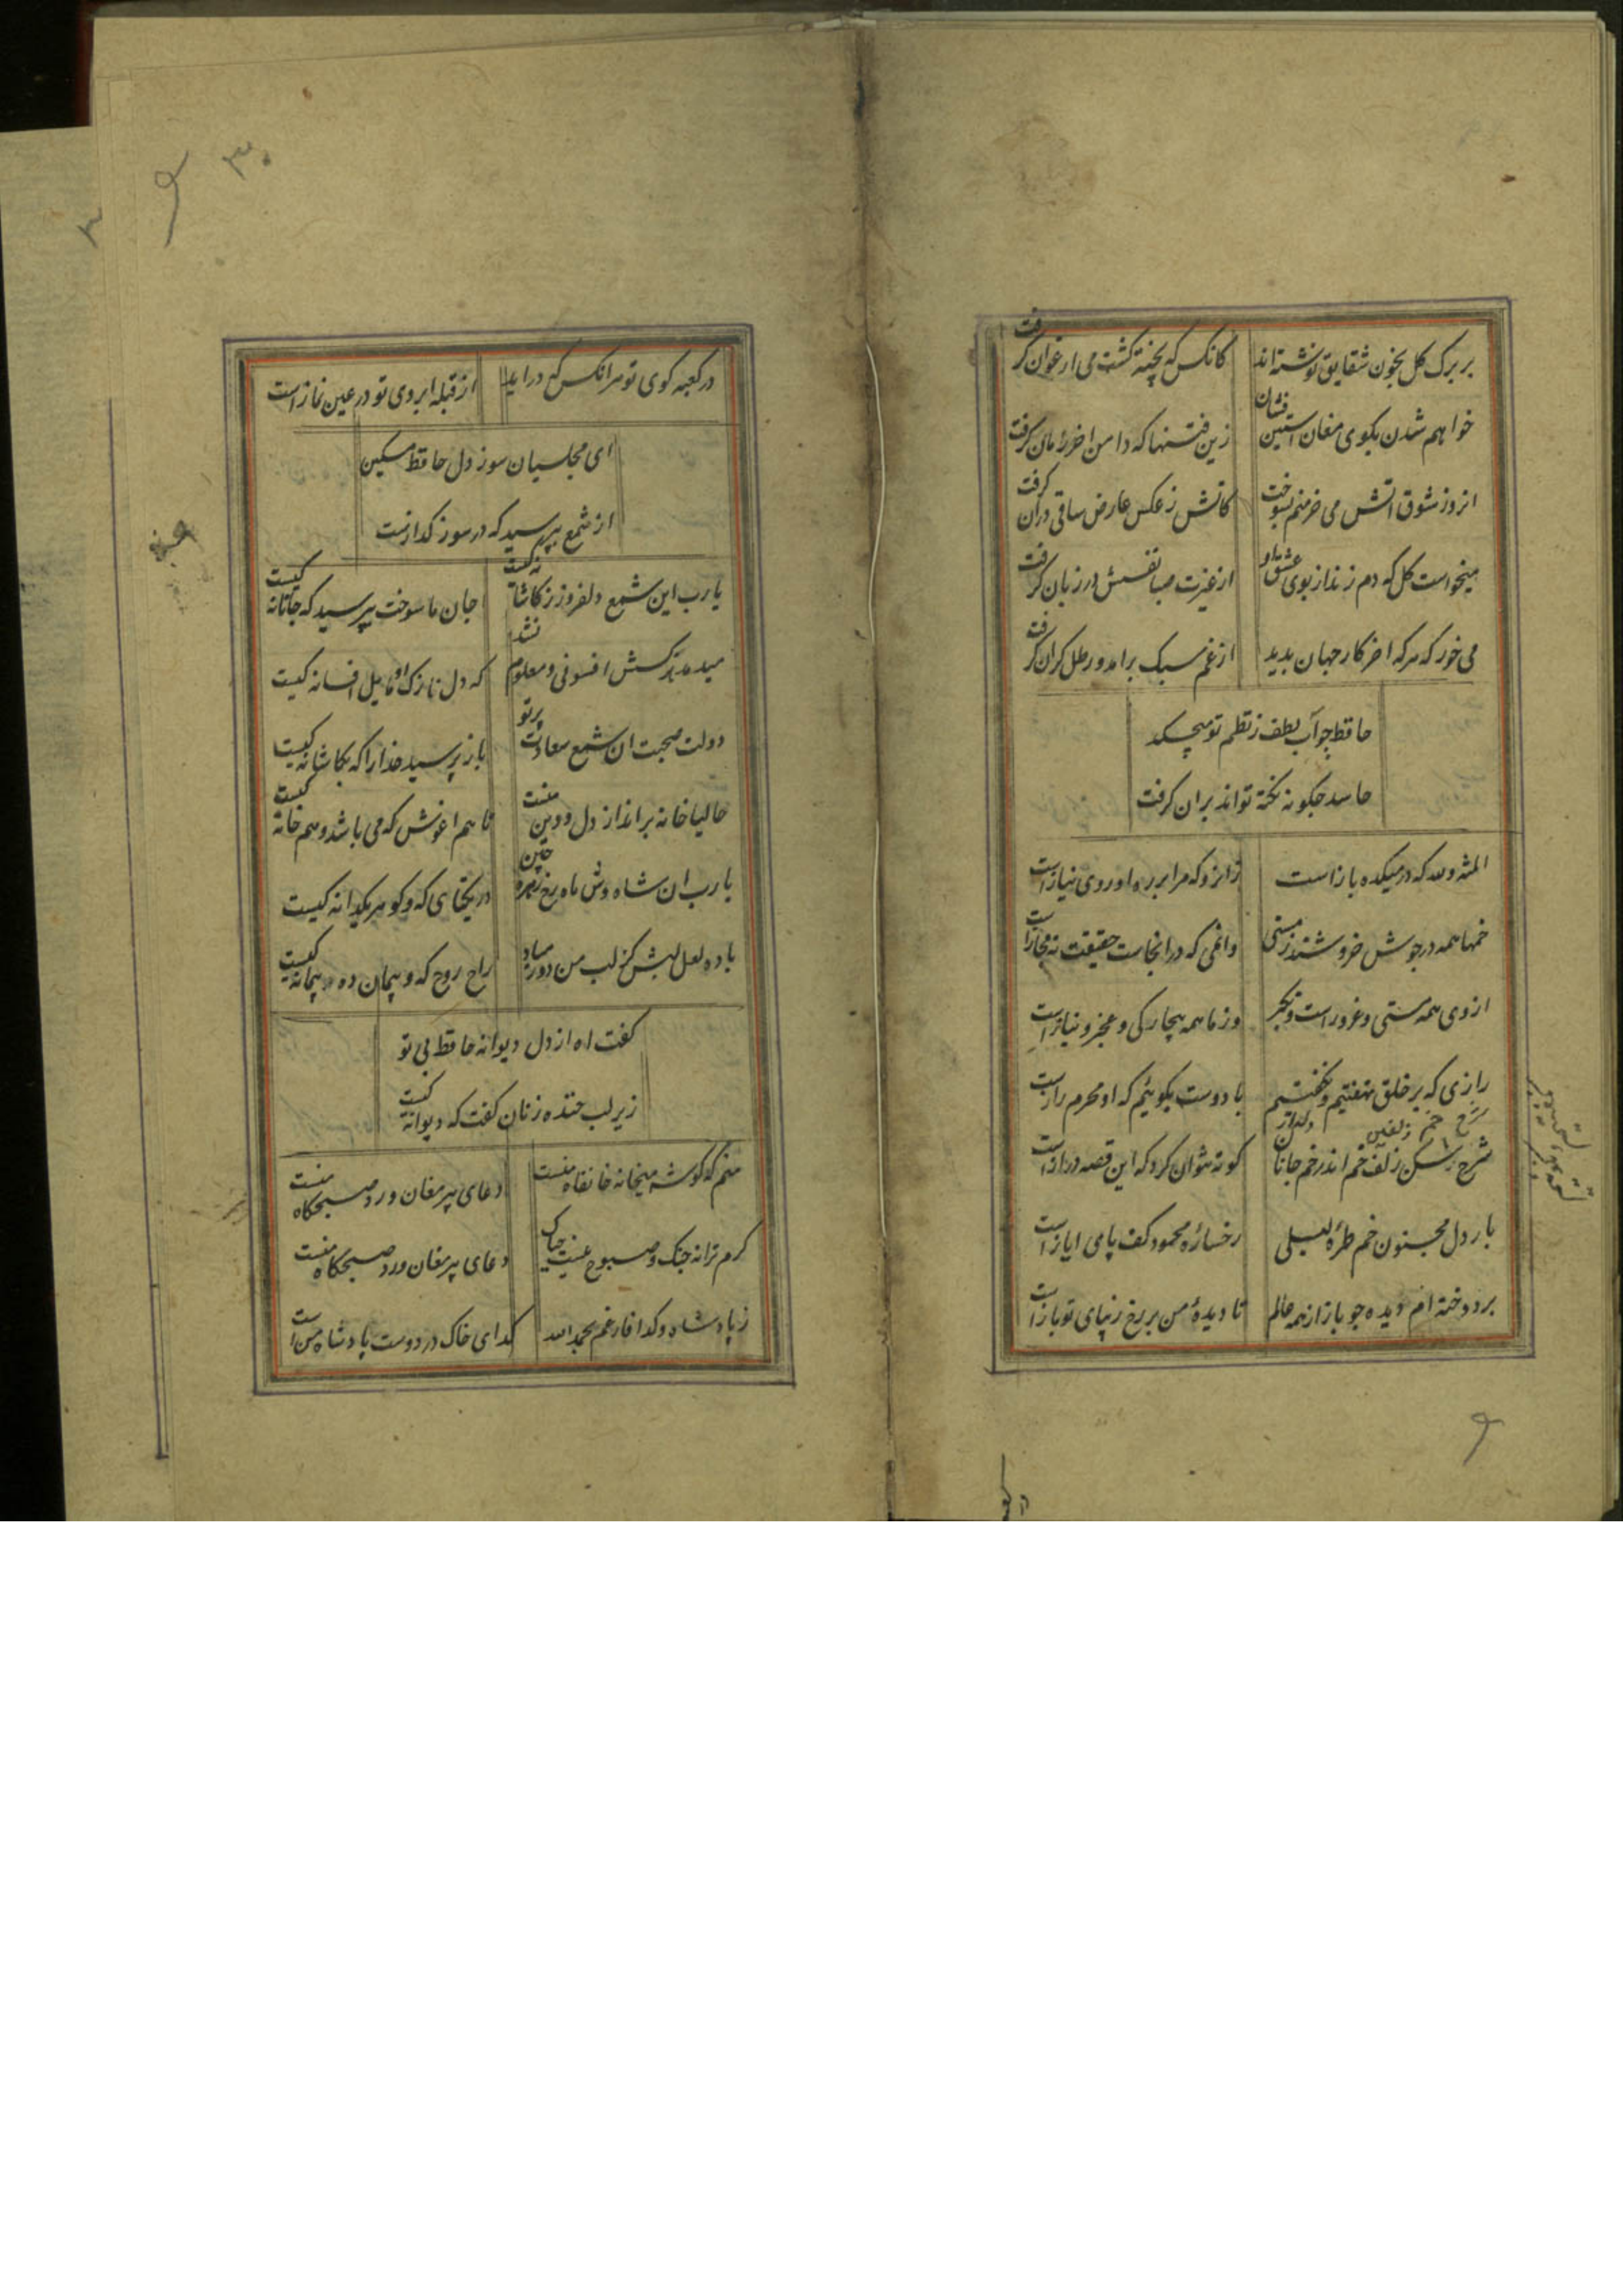 بر برک کل بخون شقایق نوشته اند
کانکس که پخته کشت می ارغوان کرفت
خواهم شدن بکوی مغان استین فشان
زین فتنها که دامن اخر زمان کرفت
انروز شوق اتش می خرمنم بسوخت
کاتش ز عکس عارض ساقی دران کرفت
میخواست کل که دم زند از بوی عشق تو
از غیرت صبا نفسش در زبان کرفت
می خور که هر که اخر کار جهان بدید
از غم سبک برامد و رطل کران کرفت
حافظ چو آب لطف ز نظم تو میچکد
حاسد چکونه نکته تواند بران کرفت
المنة و لله که در میکده باز است
زانرو که مرا بر در او روی نیاز است
خمها همه در جوش خروشند ز مستی
وان می که در انجاست حقیقت نه مجاز است
از وی همه مستی و غرور است و تکبر
وز ما همه بیچارکی و عجز و نیاز است
رازی که بر خلق نهفتیم و نکفتیم
با دوست بکوئیم که او محرم راز است
شرح خم زلفین دلدار
شرح شکن زلف خم اندر خم جانان
کوته نتوان کرد که این قصه دراز است
بار دل مجنون خم طره لیلی
رخساره محمود کف پای ایاز است
بر دوخته ام دیده چو باز از همه عالم
تا دیدۀ من بر رخ زیبای تو باز است
۳۰
در کعبه کوی تو هر انکس که در اید
از قبله ابروی تو در عین نماز است
ای مجلسیان سوز دل حافظ مسکین
از شمع بپرسید که در سوز کدازست
یا رب این شمع دلفروز ز کاشانه کیست
جان ما سوخت بپرسید که جانانه کیست
میدمد هر کسش افسونی و معلوم نشد
که دل نازک او مایل افسانه کیست
دولت صحبت ان شمع سعادت پرتو
باز پرسید خدا را که بکاشانه کیست
حالیا خانه بر انداز دل و دین منست
تا هم اغوش که می باشد و هم خانه کیست
یا رب ان شاه وش ماه رخ زهره جبین
در یکتای که و کوهر یکدانه کیست
باده لعل لبش کز لب من دور مباد
راح روح که و پیمان ده پیمانه کیست
کفت اه از دل دیوانه حافظ بی تو
زیر لب خنده زنان کفت که دیوانه کیست
منم که کوشه میخانه خانقاه منست
دعای پیر مغان ورد صبحکاه منست
کرم ترانه چنک و صبوح نیست چه باک
دعای پیر مغان ورد صبحکاه منست
ز پادشاه و کدا فارغم بحمد الله
کدای خاک در دوست پادشاه من است